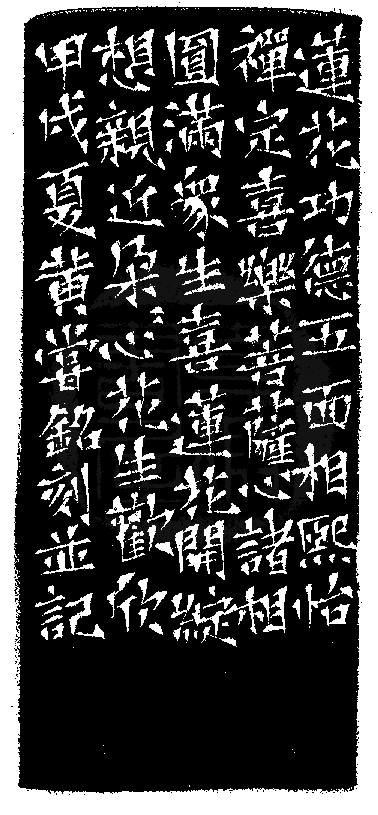 蓮花功德五面相熙怡
禪定喜樂菩薩心諸相
圓滿眾生喜蓮花開綻
想親近朵心花生歡欣
甲戌夏黄嘗銘刻並記